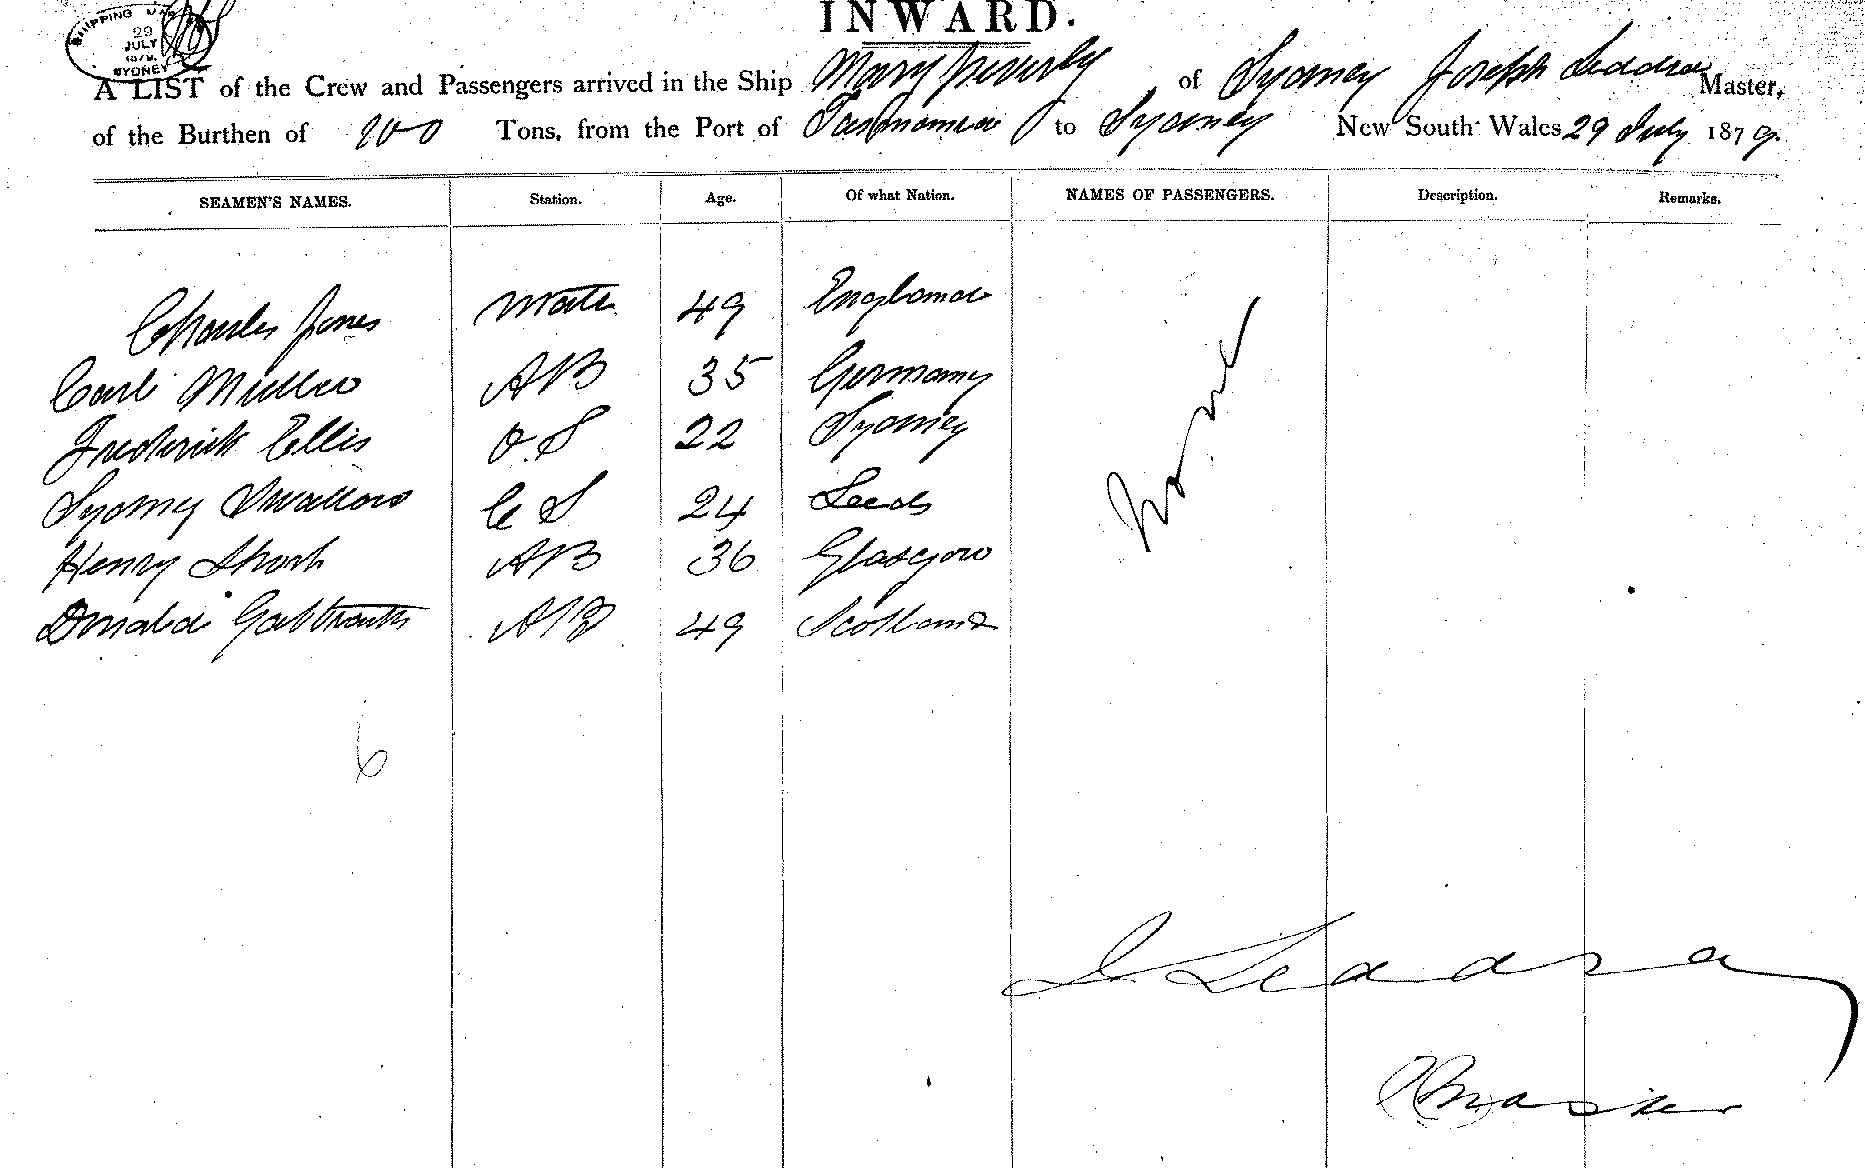 SHIPPING MAS
29
JULY
1879
SYDNEY
INWARD.
A LIST of the Crew and Passengers arrived in the Ship Mary of Sydney Joseph Leddra Master,
of the Burthen of 200 Tons, from the Port of to Sydney New South Wales 29 July 1879
SEAMEN'S NAMES. Station. Age. Of what Nation. NAMES OF PASSENGERS. Description. Remarks.
Charles Jones Mate 49 England
Carl Muller AB 35 Germany
Frederick Ellis O.S 22 Sydney
Sydney Swallow C S 24 Leeds
Henry AB 36 Glasgow
Donald AB 49 Scotland
None
6
J. Leddra
Master